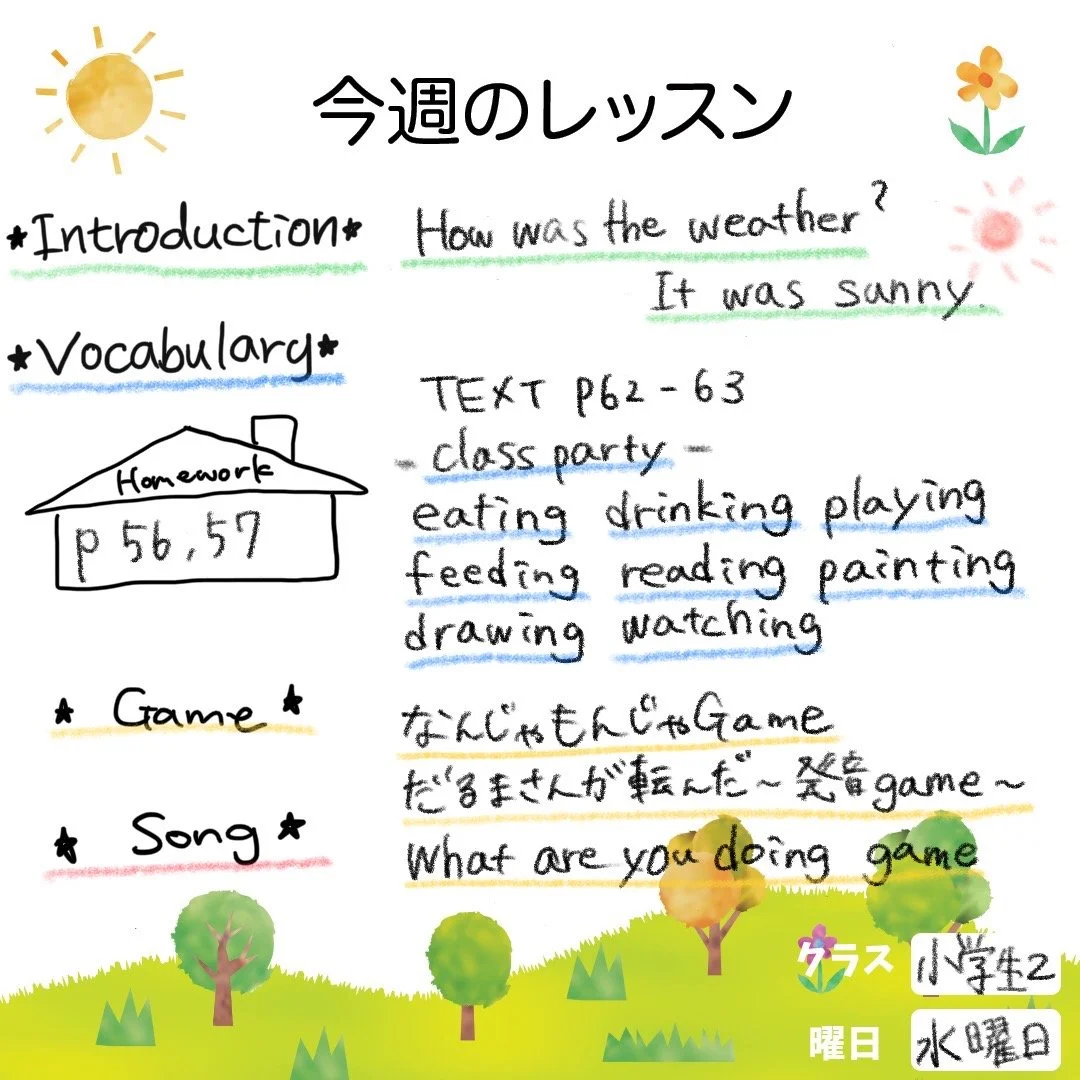 今週のレッスン
★Introduction★
How was the weather?
It was sunny.
★Vocabulary★
TEXT p62-63
- class party -
Homework
p 56,57
eating drinking playing
feeding reading painting
drawing watching
★ Game ★
なんじゃもんじゃGame
だるまさんが転んだ～発音game～
What are you doing game
★ Song ★
クラス 小学生2
曜日 水曜日